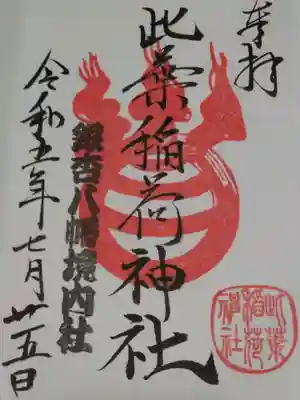 奉拝
此葉稲荷神社
銀杏八幡境内社
令和五年七月廿五日
此葉稲荷神社